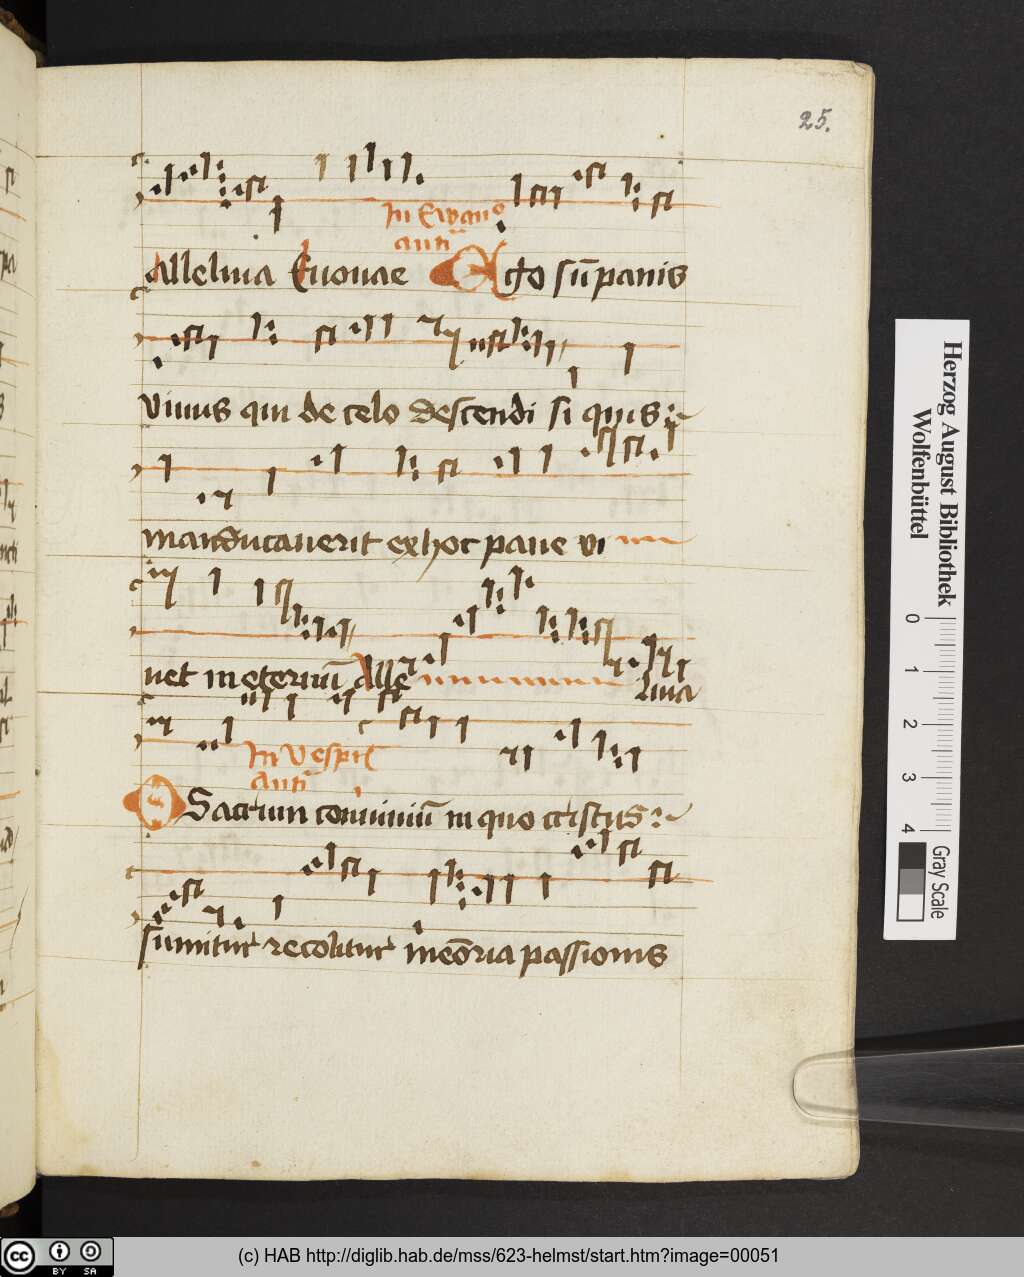 25.
In Ewango
anti
Alleluia Euouae Ego sū panis
viuus qui de celo descendi si quis
manducauerit ex hoc pane vi
uet in eternū Alle luia
In Vesp̄
Anti
O Sacrum conuiuiū in quo cristus
sumitur recolitur meōria passionis
Herzog August Bibliothek
Wolfenbüttel
0 1 2 3 4
Gray Scale
cc BY SA
(c) HAB http://diglib.hab.de/mss/623-helmst/start.htm?image=00051